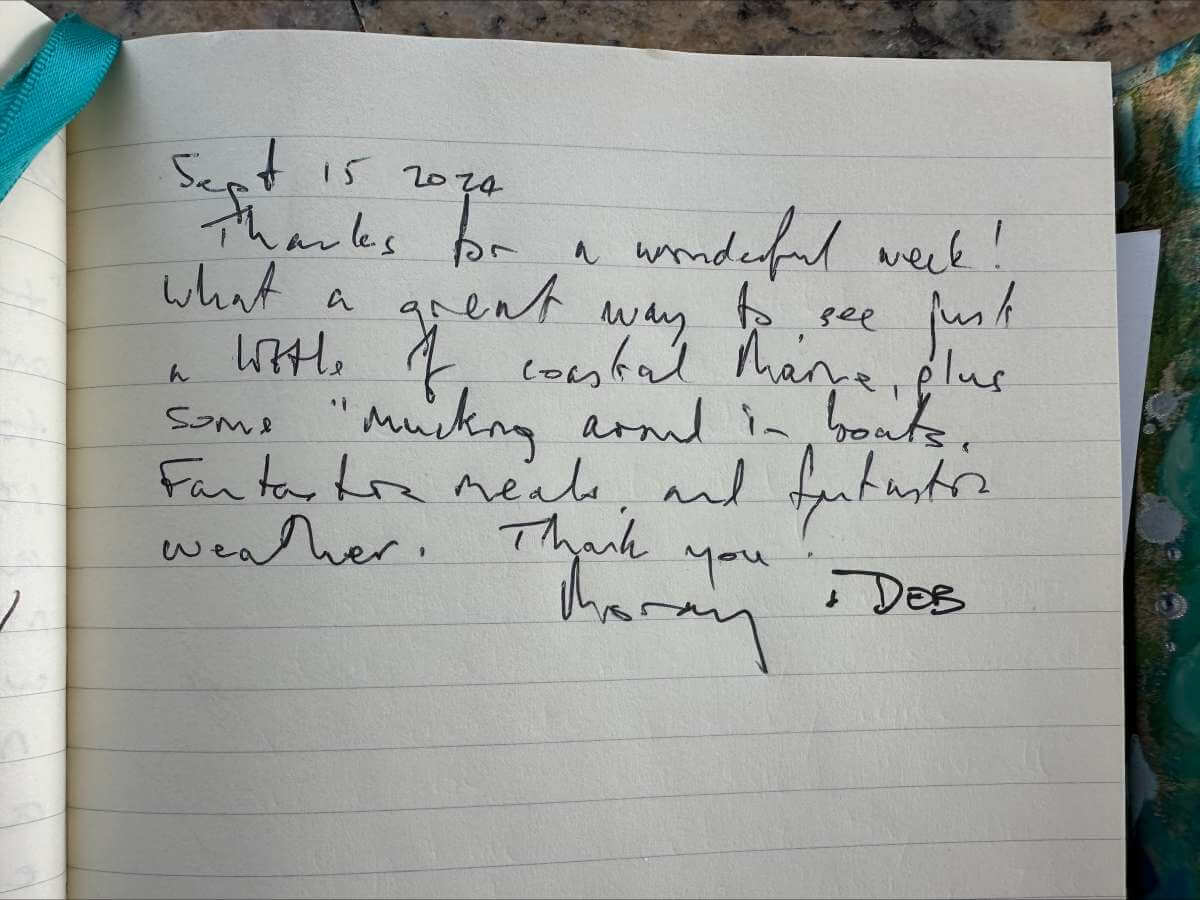 Sept 15 2024
Thanks for a wonderful week!
What a great way to see just
a little of coastal Maine, plus
some "mucking around in boats.
Fantastic meals, and fantastic
weather. Thank you!
Moray + DEB